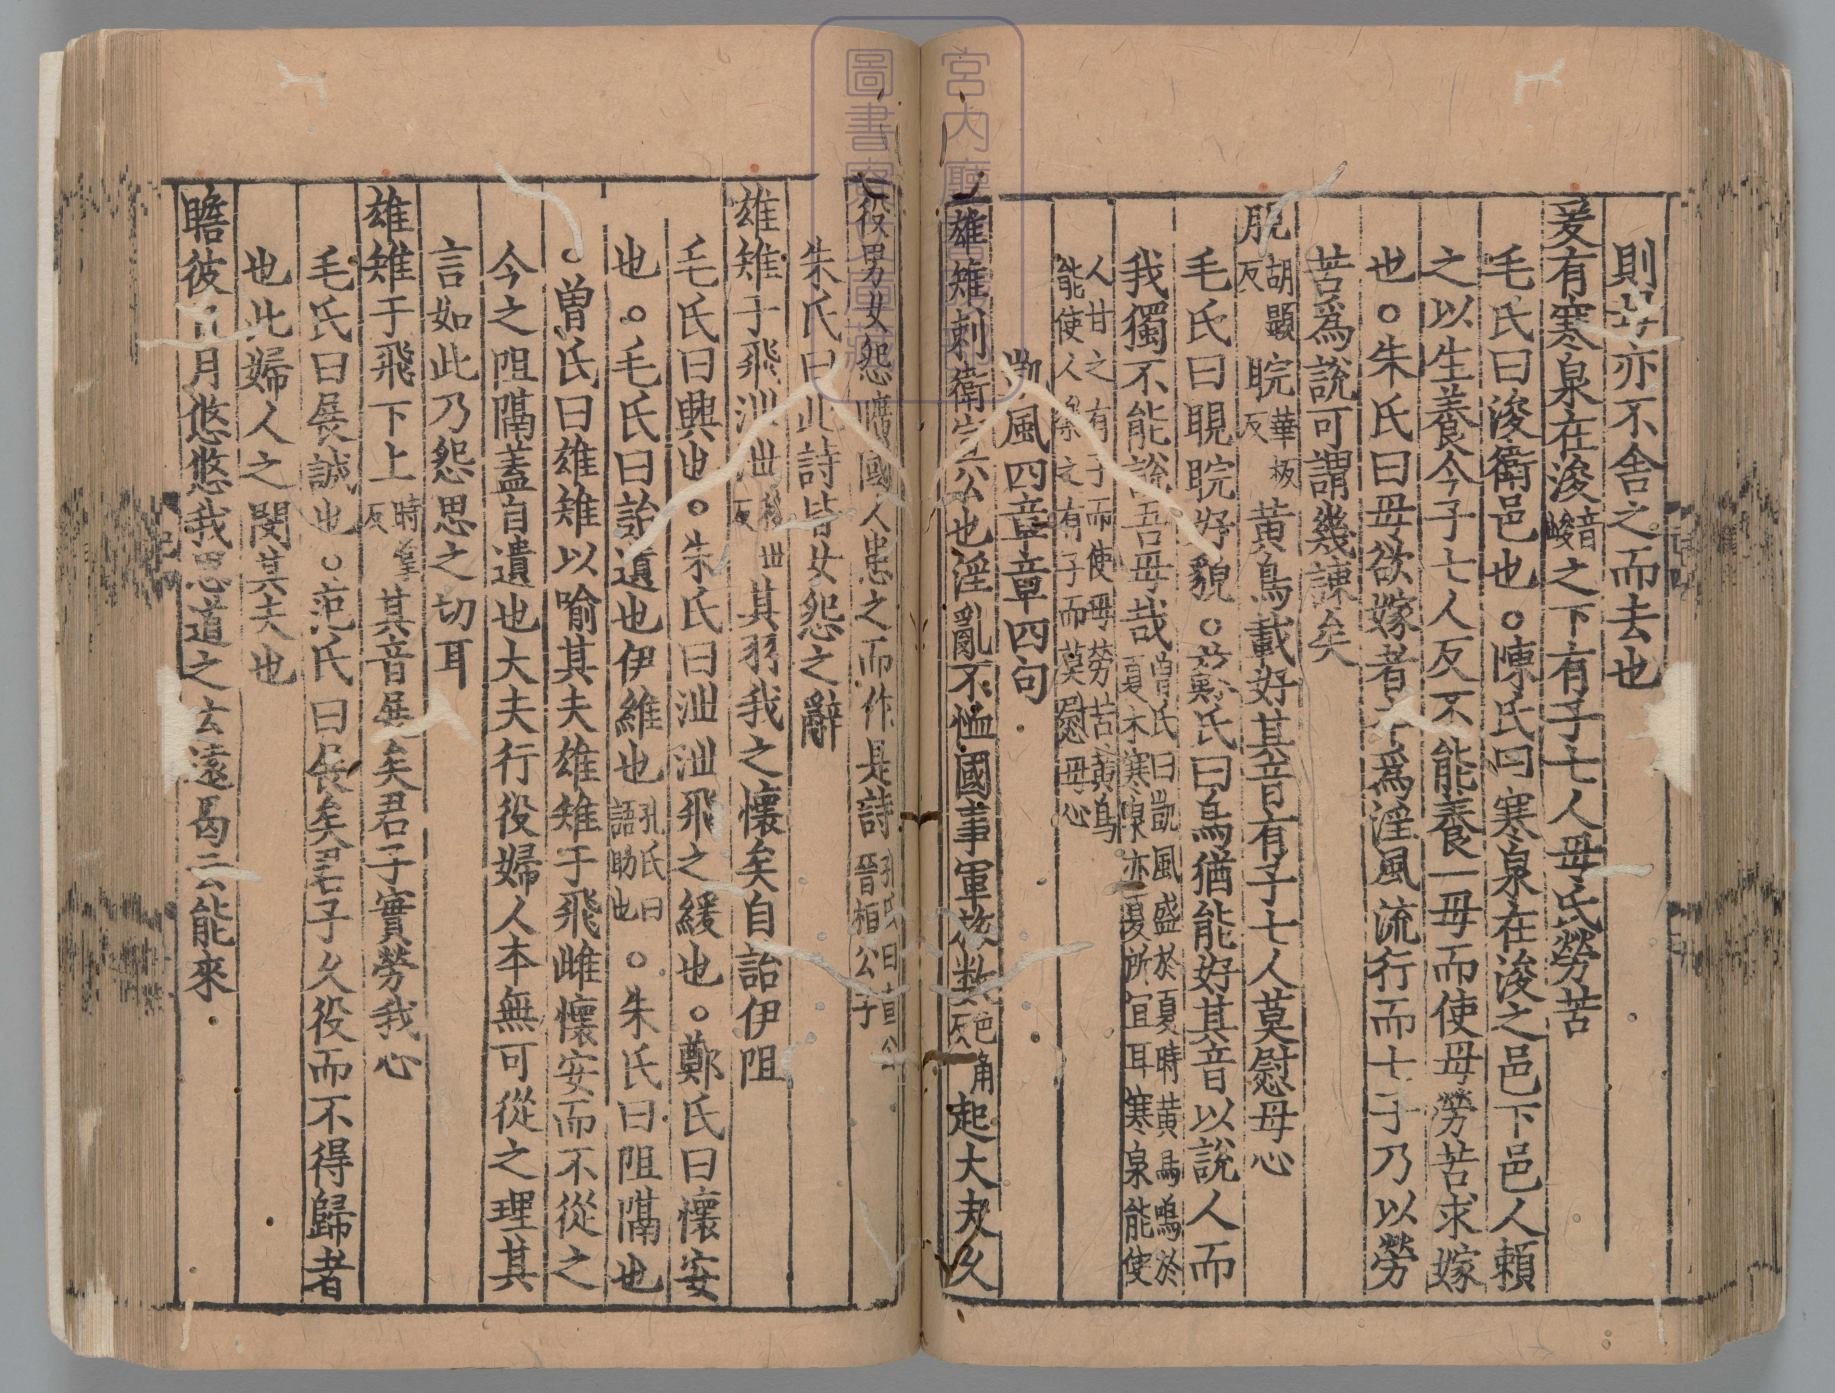 則母亦不舍之而去也
爰有寒泉在浚音峻之下有子七人母氏勞苦
毛氏曰浚衛邑也○陳氏曰寒泉在浚之邑下邑人賴
之以生養今子七人反不能養一母而使母勞苦求嫁
也○朱氏曰母欲嫁者本爲淫風流行而七子乃以勞
苦爲說可謂幾諫矣
睍胡顯反睆華板反黃鳥載好其音有子七人莫慰母心
毛氏曰睍睆好貌○蘇氏曰鳥猶能好其音以說人而
我獨不能說吾母哉曾氏曰凱風盛於夏時黃鳥鳴於夏木寒泉亦夏所宜耳寒泉能使
人甘之有子而使母勞苦黃鳥能使人樂之有子而莫慰母心
凱風四章章四句
雄雉刺衛宣公也淫亂不恤國事軍旅數色角反起大夫久
役男女怨曠國人患之而作是詩孔氏曰宣公晉桓公子
朱氏曰此詩皆女怨之辭
雄雉于飛泄泄移世反其羽我之懷矣自詒伊阻
毛氏曰興也○朱氏曰泄泄飛之緩也○鄭氏曰懷安
也○毛氏曰詒遺也伊維也孔氏曰語助也○朱氏曰阻隔也
○曾氏曰雄雉以喻其夫雄雉于飛雌懷安而不從之
今之阻隔蓋自遺也大夫行役婦人本無可從之理其
言如此乃怨思之切耳
雄雉于飛下上時掌反其音展矣君子實勞我心
毛氏曰展誠也○范氏曰展矣君子久役而不得歸者
也此婦人之閔其夫也
瞻彼日月悠悠我思道之云遠曷云能來
宮内廳
圖書寮